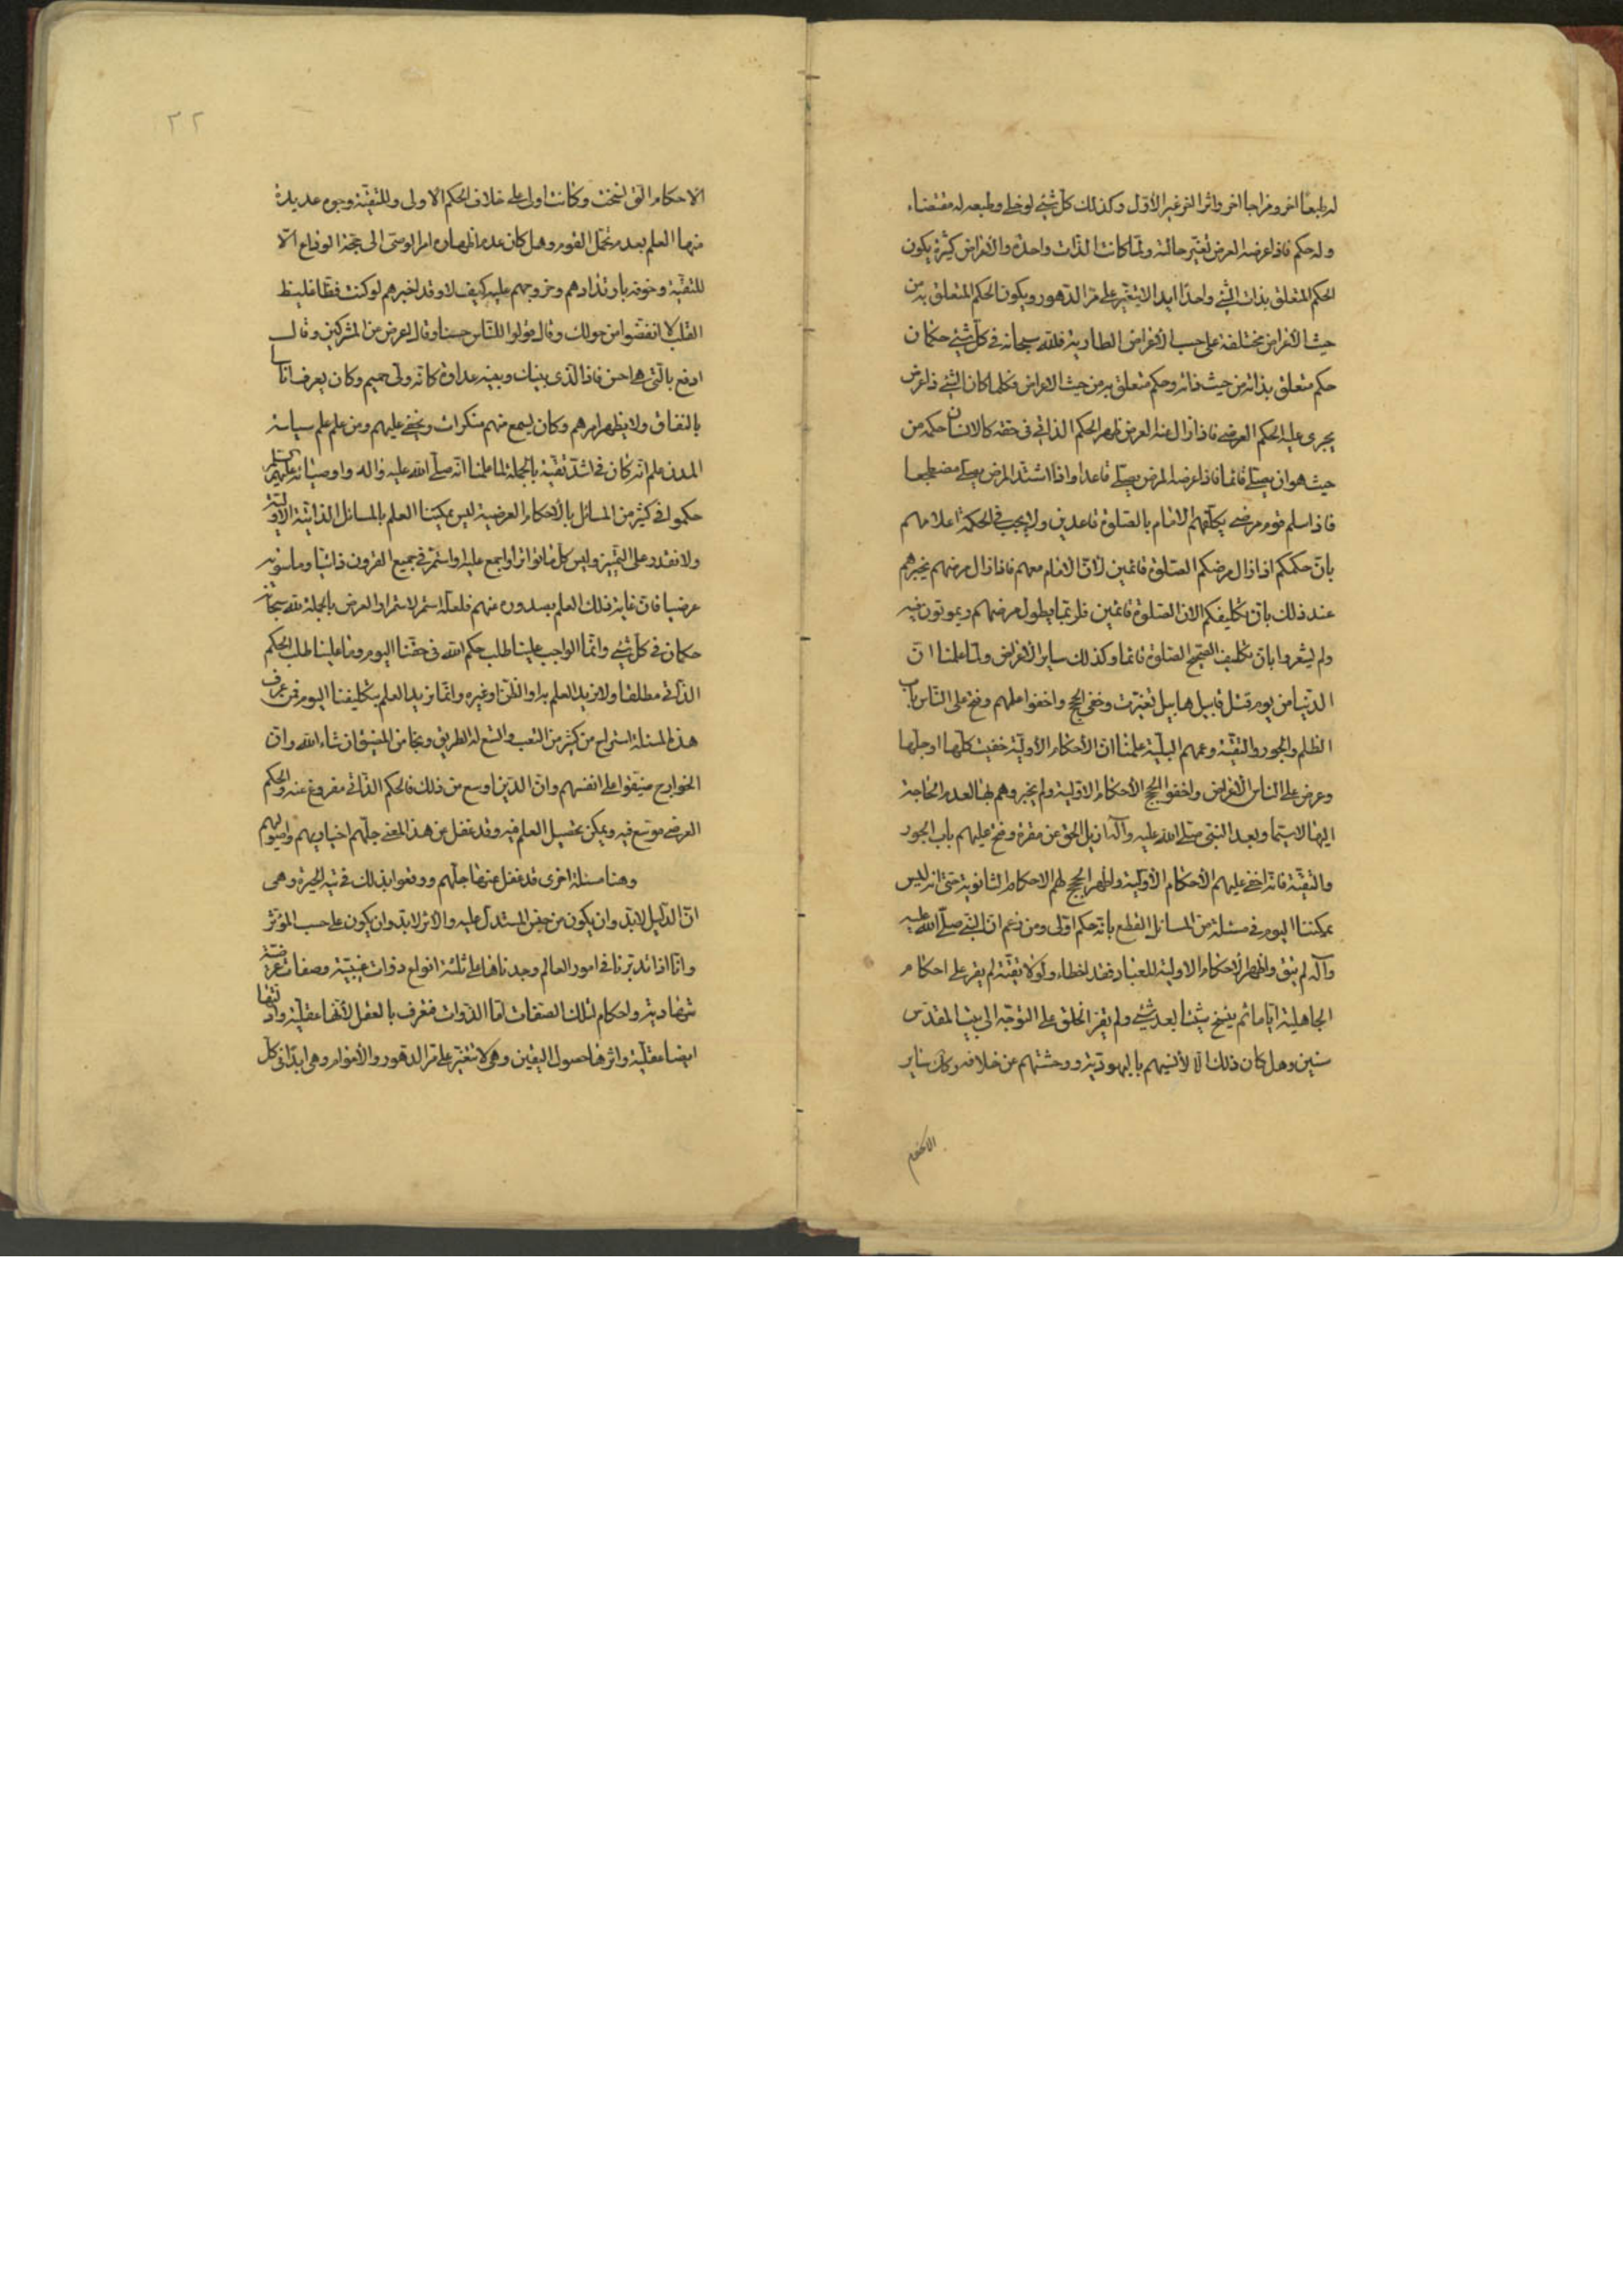 له طبعا اخر ومزاجا اخر واثرا اخر غير الأول وكذلك كل شئ لوخلى وطبعه له مقتضاء
وله حكم فاذا عرضه العرض تغير حالته ولما كانت الذات واحدة والأعراض كثيرة يكون
الحكم المتعلق بذات الشئ واحدا ابدا لا يتغير على مر الدهور ويكون الحكم المتعلق به من
حيث الأعراض مختلفة على حسب الأعراض الطارية فلله سبحانه فى كل شئ حكمان
حكم متعلق بذاته من حيث ذاته وحكم متعلق به من حيث الاعراض وكلما كان الشئ ذا عرض
يجرى عليه الحكم العرضى فاذا زال عنه العرض ظهر الحكم الذاتى فى حقه كالانسان حكمه من
حيث هو ان يصلى قائما فاذا عرضه المرض يصلى قاعدا واذا اشتد المرض يصلى مضطجعا
فاذا اسلم قوم مرضى يكلفهم الامام بالصلوة قاعدين ولا يجب فى الحكمة اعلامهم
بان حكمكم اذا زال مرضكم الصلوة قائمين لأن الامام معهم فاذا زال مرضهم يخبرهم
عند ذلك بان تكليفكم الان الصلوة قائمين فلربما يطول مرضهم ويموتون فيه
ولم يشعروا بان تكليف الصحيح الصلوة قائما وكذلك ساير الأعراض ولما علمنا ان
الدنيا من يوم قتل قابيل هابيل تغيرت وخفى الحجج واخفوا علمهم وفتح على الناس باب
الظلم والجور والتقية وعمهم البلية علمنا ان الأحكام الأولية خفيت كلها او جلها
وعرض على الناس الأعراض واخفوا الحجج الأحكام الاولية ولم يخبروهم بها لعدم الحاجة
اليها لا سيما وبعد النبى صلى الله عليه وآله ازيل الحق عن مقره وفتح عليهم باب الجور
والتقية فانه اخفى عليهم الأحكام الأولية واظهر الحجج لهم الاحكام الثانوية حتى انه ليس
يمكننا اليوم فى مسئلة من المسائل القطع بانه حكم اولى ومن زعم ان النبى صلى الله عليه
وآله لم يتق واظهر الاحكام الاولية للعباد فقد اخطاء ولولا تقية لم يقر على احكام
الجاهلية اياما ثم ينسخ شيئا بعد شئ ولم يقر الخلق على التوجه الى بيت المقدس
سنين وهل كان ذلك الا لأنسهم باليهودية ووحشتهم عن خلافه وكك ساير
الاحكام
٢٢
الاحكام التى نسخت وكانت اول على خلاف الحكم الاولى وللتقية وجوه عديدة
منها العلم بعدم تحمل القوم وهل كان عدم اظهاره امر الوصى الى حجة الوداع الا
للتقية وخوفه بارتدادهم وخروجهم عليه كيف لا وقد اخبرهم لو كنت فظا غليظ
القلب لانفضوا من حولك وقال قولوا للناس حسنا وقال اعرض عن المشركين وقال
ادفع بالتى هى احسن فاذا الذى بينك وبينه عداوة كانه ولى حميم وكان يعرف اناسا
بالنفاق ولا يظهر امرهم وكان يسمع منهم منكرات ويخفى عليهم ومن علم علم سياسة
المدن علم انه كان فى اشد تقية بالجملة لما علمنا انه صلى الله عليه واله واوصيائه عليهم السلم
حكموا فى كثير من المسائل بالأحكام العرضية ليس يمكننا العلم بالمسائل الذاتية الاولية
ولا نقدر على التميز وليس كل ما تواتر او اجمع عليه او استمر فى جميع القرون ذاتيا وما سويه
عرضيا فان غاية ذلك العلم بصدوره عنهم فلعله استمر لاستمرار العرض بالجملة لله سبحانه
حكمان فى كل شئ وانما الواجب علينا طلب حكم الله فى حقنا اليوم وما علينا طلب الحكم
الذاتى مطلقا ولا نريد العلم به او الظن او غيره وانما نريد العلم بتكليفنا اليوم فمن عرف
هذه المسئلة استراح من كثير من التعب واتسع له الطريق ونجا من المضيق ان شاء الله وان
الخوارج ضيقوا على انفسهم وان الدين اوسع من ذلك فالحكم الذاتى مفروغ عنه والحكم
العرضى موسع فيه ويمكن تحصيل العلم فيه وقد غفل عن هذا المعنى جلهم اخباريهم واصوليهم
وهنا مسئلة اخرى قد غفل عنها جلهم ووقعوا بذلك فى تيه الحيرة وهى
ان الدليل لابد وان يكون من جنس المستدل عليه والاثر لابد وان يكون على حسب المؤثر
وانا اذا تدبرنا فى امور العالم وجدناها على ثلثة انواع ذوات غيبية وصفات عرضية
شهادية واحكام لتلك الصفات اما الذوات فتعرف بالعقل لأنها عقلية وادلتها
ايضا عقلية واثرها حصول اليقين وهى لا تتغير على مر الدهور والأعوام وهى ابدا فى كل